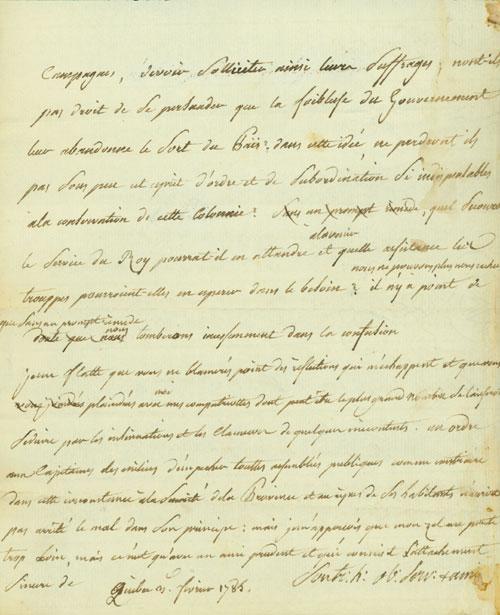 Campagnes, devoir Solliciter ainsi leurs Suffrages; n'ont-ils
pas droit de se persuader que la foiblesse du Gouvernement
leur abandonne le Sort du Païs; dans cette idée ne perdront ils
pas Sous peu cet esprit d'ordre et de Subordination Si indispensables
a la conservation de cette Colonnie? Sans un prompt remede, quel Secours
a l'avenir
le Service du Roy pourrat-il en attendre et quelle resistance les
nous ne pouvons plus nous cacher
trouppes pourroient-elles en esperer dans le besoin? il n'y a point de
que Sans un prompt remede
doute que nous nous tomberons incessamment dans la confusion
que vous ne blamerés point des reflections qui m'échappent et que vous
plaindrés avec moi mes compatriottes dont peut être le plus grand nombre de laisse
Seduire par les insinuations et les Clameurs de quelque inconstants. un ordre
aux Capitaines des milices d'empecher touttes assemblées publiques comme contraire
dans cette circonstance a la Sureté de la Province et au repos de Ses habitants
pas arrêté le mal dans Son principe: mais j'appercois que mon zel me porte
trop Loin, mais ce n'est qu'avec un ami prudent et qui connoit L'attachement
Sincere de Quebec fevrier 1785. Votre h. ob. Serv. & ami